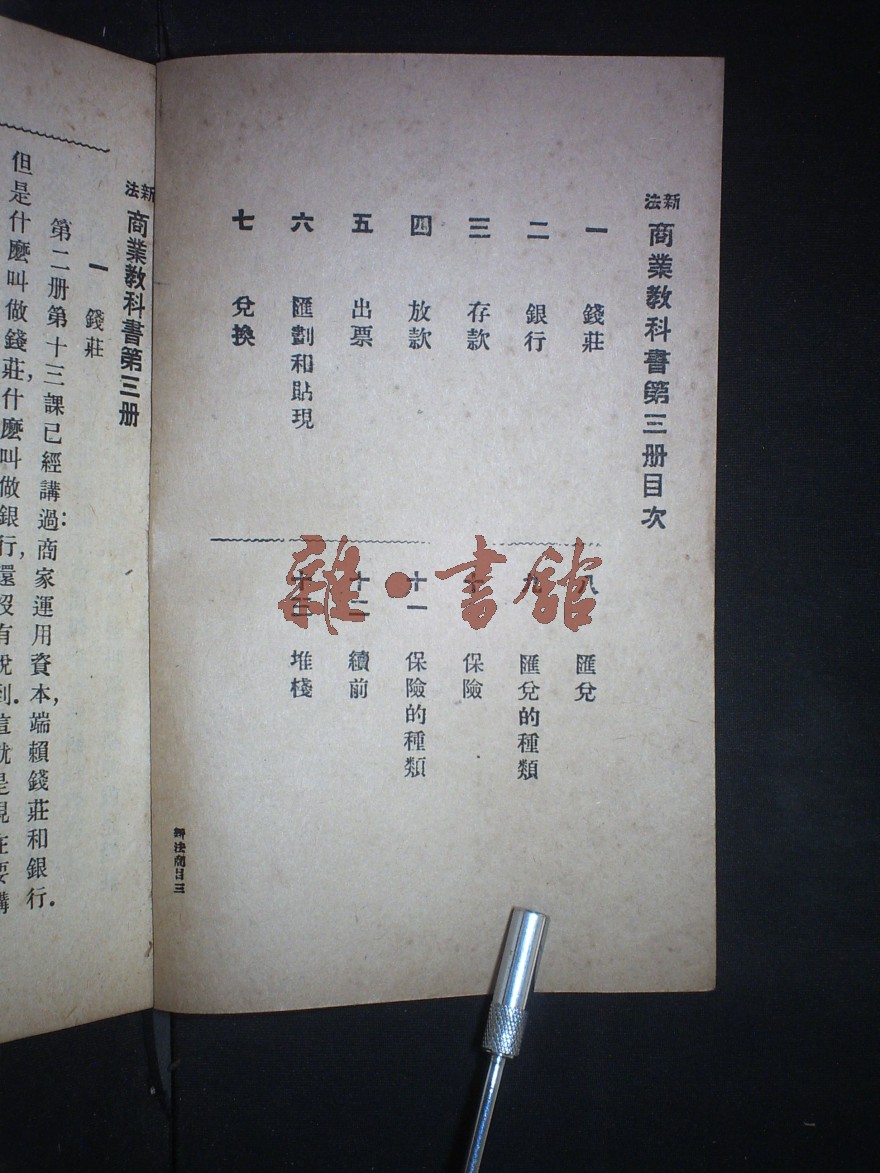 新法商業教科書第三册目次
一 錢莊
二 銀行
三 存款
四 放款
五 出票
六 匯劃和貼現
七 兌換
八 匯兌
九 匯兌的種類
十 保險
十一 保險的種類
十二 續前
十三 堆棧
新法商目三
雜·書舘
新法商業教科書第三册
一 錢莊
第二册第十三課已經講過:商家運用資本,端賴錢莊和銀行.
但是什麽叫做錢莊,什麽叫做銀行,還没有說到.這就是現在要講